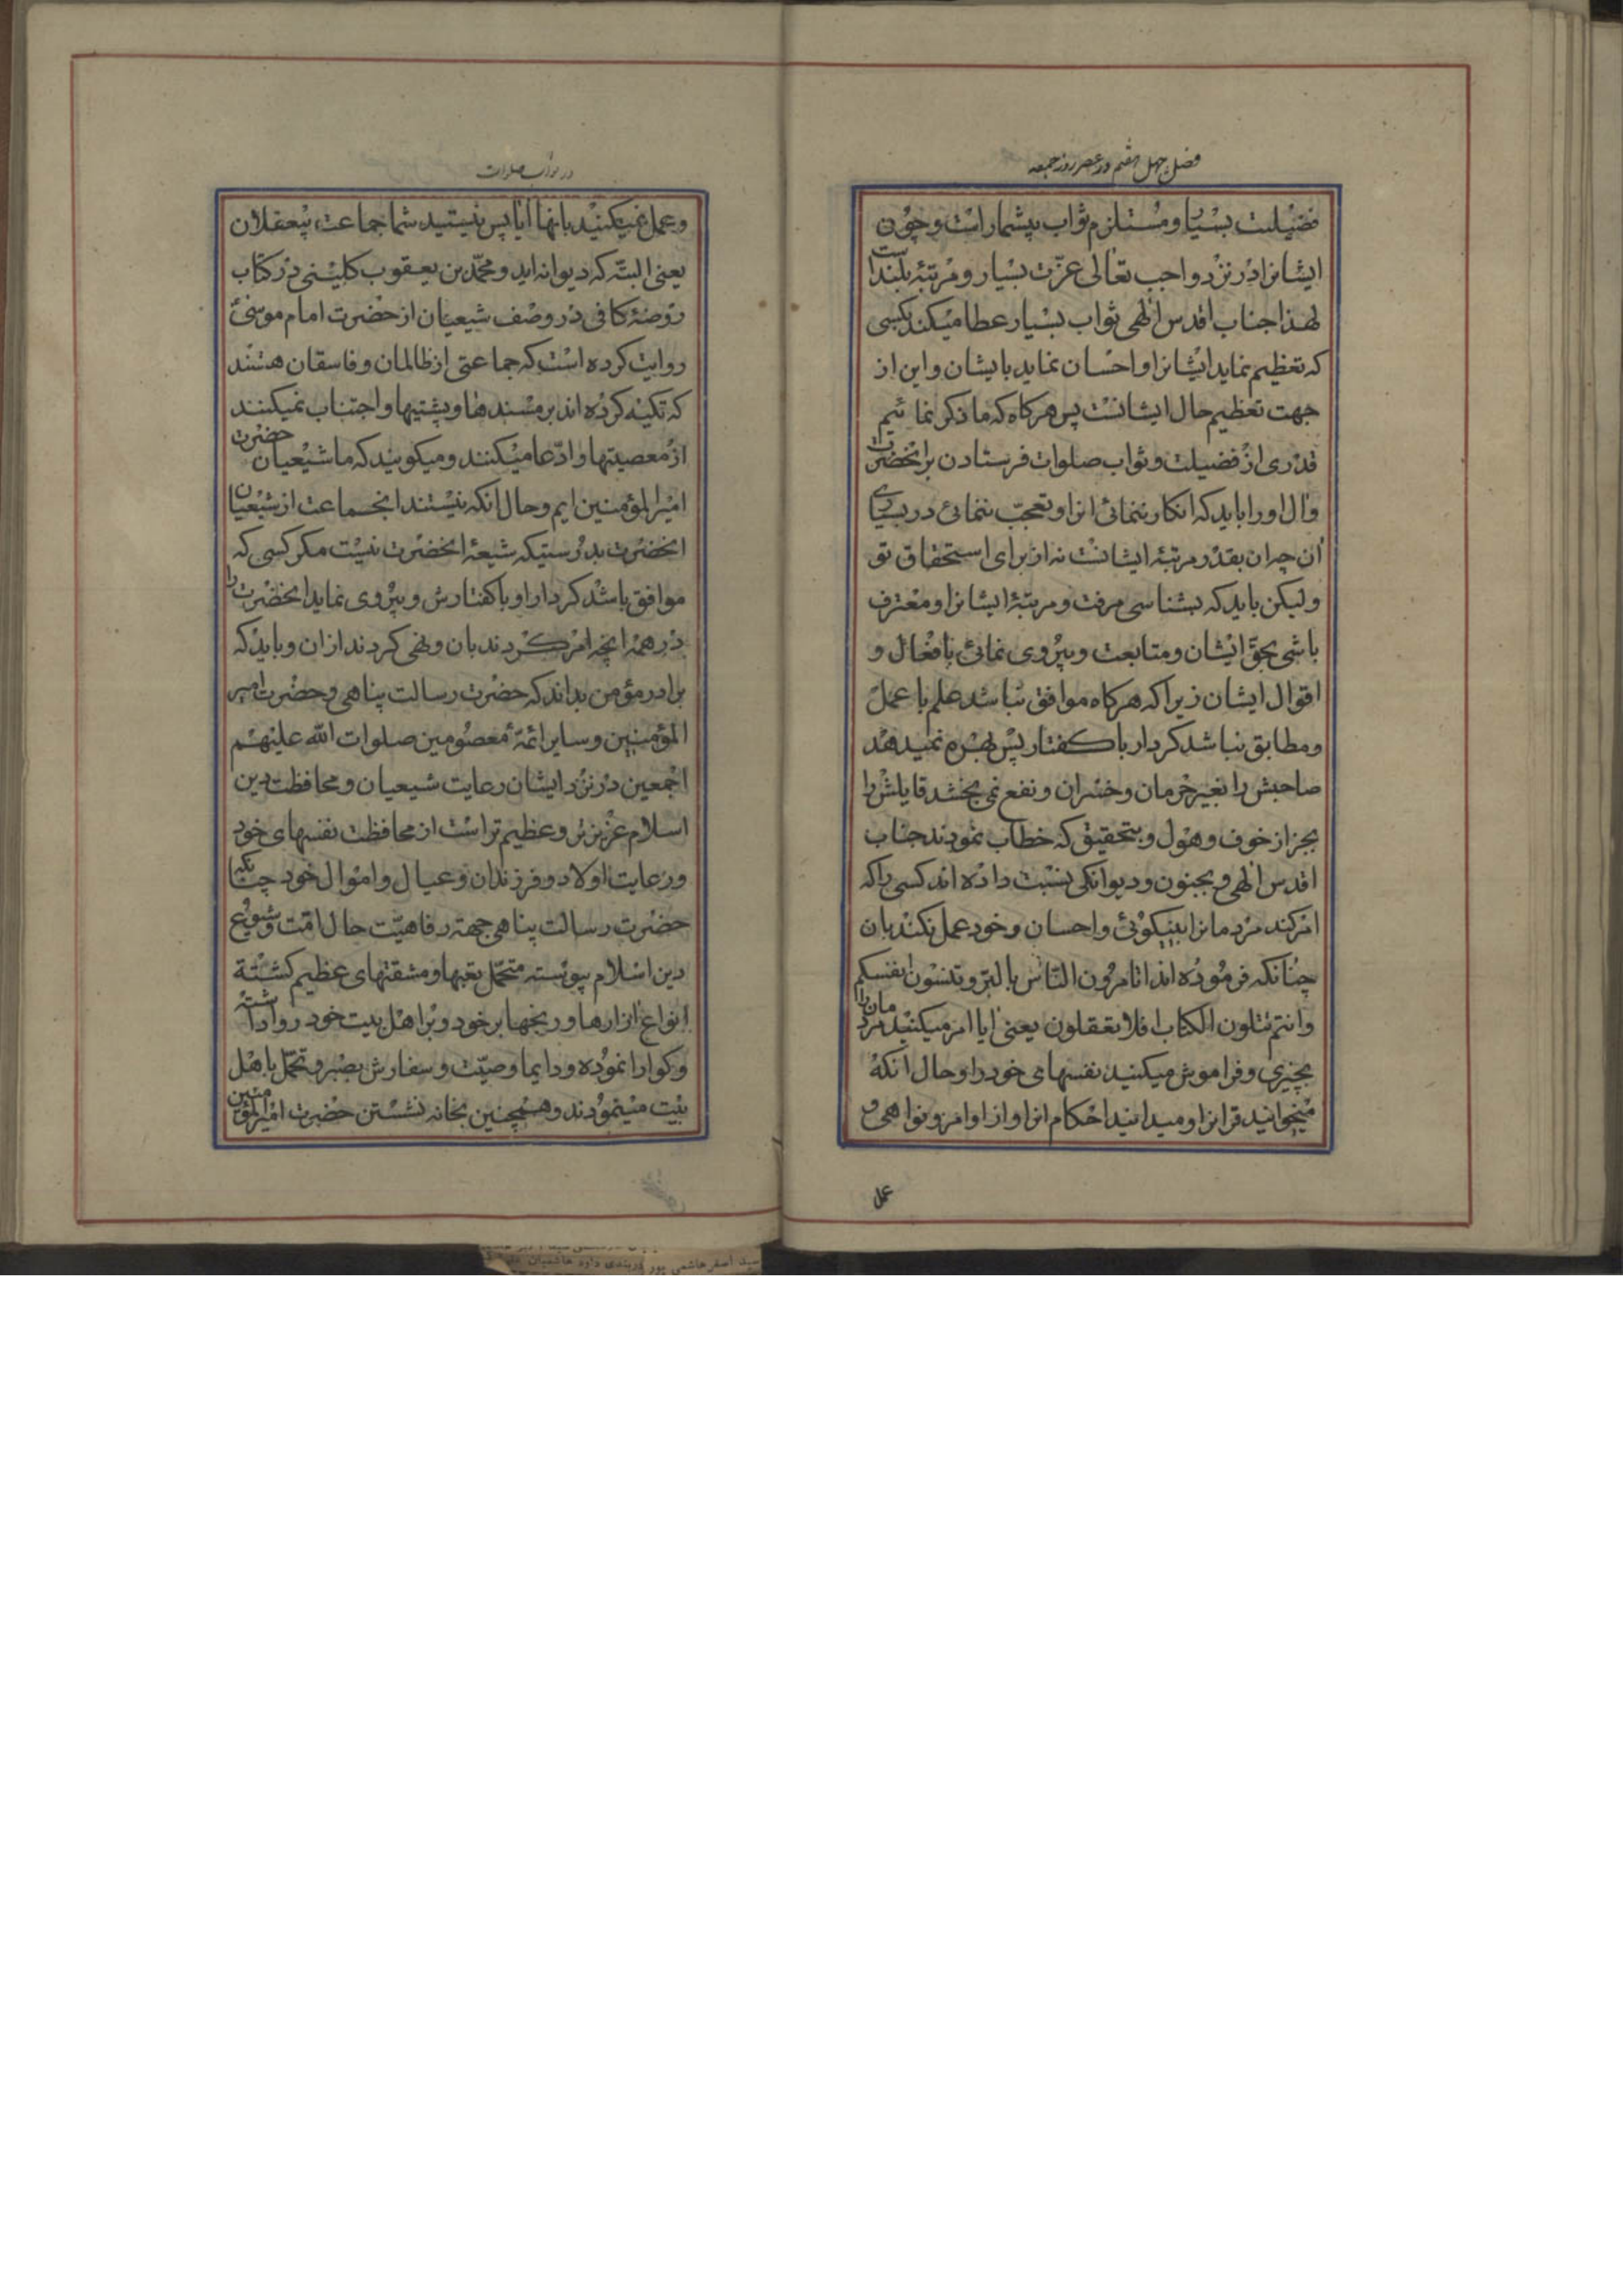 فصل چهل هفتم در عصر روز جمعه
فضیلت بسیار و مستلزم ثواب بیشمار است و چون
ایشانرا در نزد واجب تعالی عزّت بسیار و مرتبهٔ بلند است
لهذا جناب اقدس الهی ثواب بسیار عطا میکند بکسی
که تعظیم نماید ایشانرا و احسان نماید بایشان و این از
جهت تعظیم حال ایشانست پس هرکاه که ما ذکر نمائیم
قدری از فضیلت و ثواب صلوات فرستادن بر انحضرت
و ال او را باید که انکار ننمائی انرا و تعجب ننمائی در بسیاری
آن چه ان بقدر مرتبهٔ ایشانست نه از برای استحقاق تو
و لیکن باید که بشناسی مرفت و مرتبهٔ ایشانرا و معترف
باشی بحق ایشان و متابعت و پیروی نمائی بافعال و
اقوال ایشان زیرا که هرکاه موافق نباشد علم با عمل
و مطابق نباشد کردار با کفتار پس بهره نمیدهد
صاحبش را بغیر حرمان و خسران و نفع نمی بخشد قایلش را
بجز از خوف و هول و بتحقیق که خطاب نمودند جناب
اقدس الهی و بجنون و دیوانکی نسبت داده اند کسی را که
امر کند مردمانرا بنیکوئی و احسان و خود عمل نکند بان
چنانکه فرموده اند اتامرون النّاس بالبرّ و تنسون انفسکم
و انتم تتلون الکتاب افلا تعقلون یعنی ایا امر میکنید مردمان را
بچیزی و فراموش میکنید نفسهای خود را و حال انکه
میخوانید قرانرا و میدانید احکام انرا و از اوامر و نواهی و
عمل
در ثواب صلوات
و عمل نمیکنید بانها ایا پس نیستید شما جماعت بیعقلان
یعنی البتّه که دیوانه اید و محمّد بن یعقوب کلینی در کتاب
روضهٔ کافی در وصف شیعیان از حضرت امام موسیٰ
روایت کرده است که جماعتی از ظالمان و فاسقان هستند
که تکیه کرده اند بر مسندها و پشتیها و اجتناب نمیکنند
از معصیتها و ادّعا میکنند و میکویند که ما شیعیان حضرت
امیرالمؤمنین ایم و حال انکه نیستند انجماعت از شیعیان
انحضرت بدرستیکه شیعهٔ انحضرت نیست مکر کسی که
موافق باشد کردار او با کفتارش و پیروی نماید انحضرت را
در همهٔ انچه امر کردند بان و نهی کردند از ان و باید که
برادر مؤمن بداند که حضرت رسالت پناهی و حضرت امیر
المؤمنین و سایر ائمّهٔ معصومین صلوات الله علیهم
اجمعین در نزد ایشان رعایت شیعیان و محافظت دین
اسلام عزیزتر و عظیم تر است از محافظت نفسهای خود
و رعایت اولاد و فرزندان و عیال و اموال خود چنانکه
حضرت رسالت پناهی جهة رفاهیّت حال امّت و شیوع
دین اسلام پیوسته متحمّل تعبها و مشقتهای عظیم کشته
انواع ازارها و رنجها بر خود و بر اهل بیت خود روا داشته
و کوارا نموده و دایما وصیّت و سفارش بصبر و تحمّل باهل
بیت مینمودند و همچنین بخانه نشستن حضرت امیرالمؤمنین